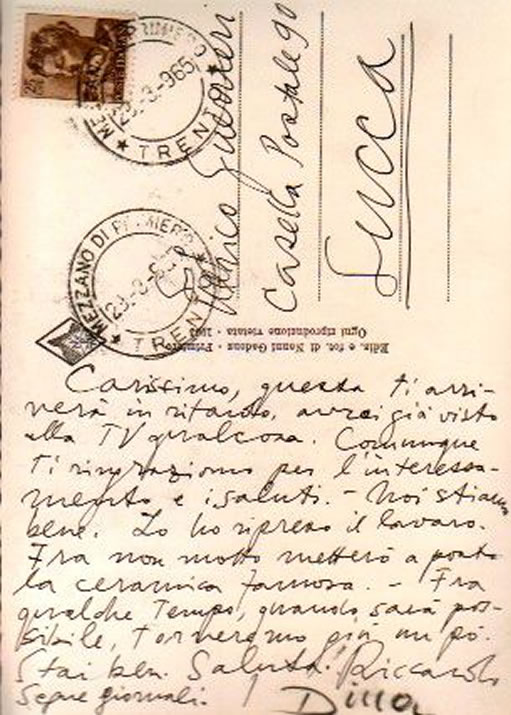 MEZZANO DI PRIMIERO
23-3-965
★ TRENTO ★
MEZZANO DI PRIMIERO
23-3-965
★ TRENTO ★
Guarnieri
Casella Postale 90
Lucca
Ediz. e fot. di Nanni Gadenz - Primiero
Ogni riproduzione vietata
Carissimo, questa ti arri-
verà in ritardo, avrai già visto
alla TV qualcosa. Comunque
ti ringraziamo per l'interessa-
mento e i saluti. - Noi stiamo
bene. Io ho ripreso il lavoro.
Fra non molto metterò a posto
la ceramica famosa. - Fra
qualche tempo, quando sarà pos-
sibile, torneremo giù un pò.
Stai ben. Saluta! Riccardo
Segue giornali. Dina